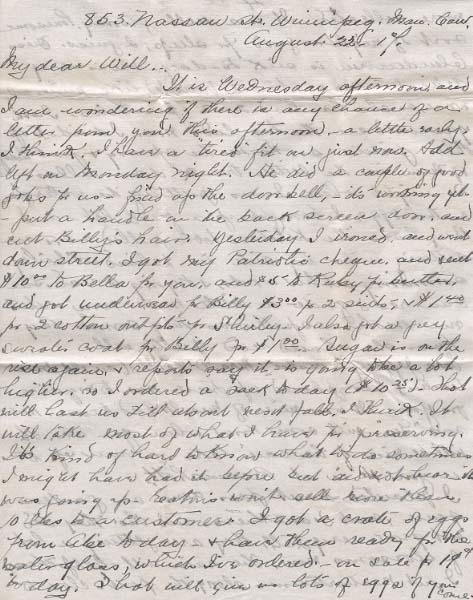 853 Nassau St. Winnipeg, Man. Can.
August 22 - 17.
My dear Will...
It is Wednesday afternoon and
I am wondering if there is any chance of a
letter from you this afternoon - a little early
I think. I have a "tired" fit on just now. Add
left on Monday night. He did a couple of good
jobs for us - fixed up the door bell, - it's working yet -
- put a handle on the back screen door, and
cut Billy's hair. Yesterday I ironed, and went
down street. I got my Patriotic cheque, and sent
$10.00 to Bella for you, and $5 to Ruby for butter,
and got underwear for Billy $3.00 for 2 suits, & $1.40
for 2 cotton outfits for Shirley. I also got a grey
sweater coat for Billy for $1.00. Sugar is on the
rise again, & reports say it is going to be a lot
higher, so I ordered a sack to day ($10.25). That
will last us till about next fall, I think. It
will take most of what I have for preserving.
It's kind of hard to know what to do sometimes
I might have had it before but did not hear it
was going up. Eaton's won't sell more than
10 lbs to a customer. I got a crate of eggs
from Abe to day - & have them ready for the
water glass, which I've ordered - on sale for 19¢
to day. That will give us lots of eggs if you
come